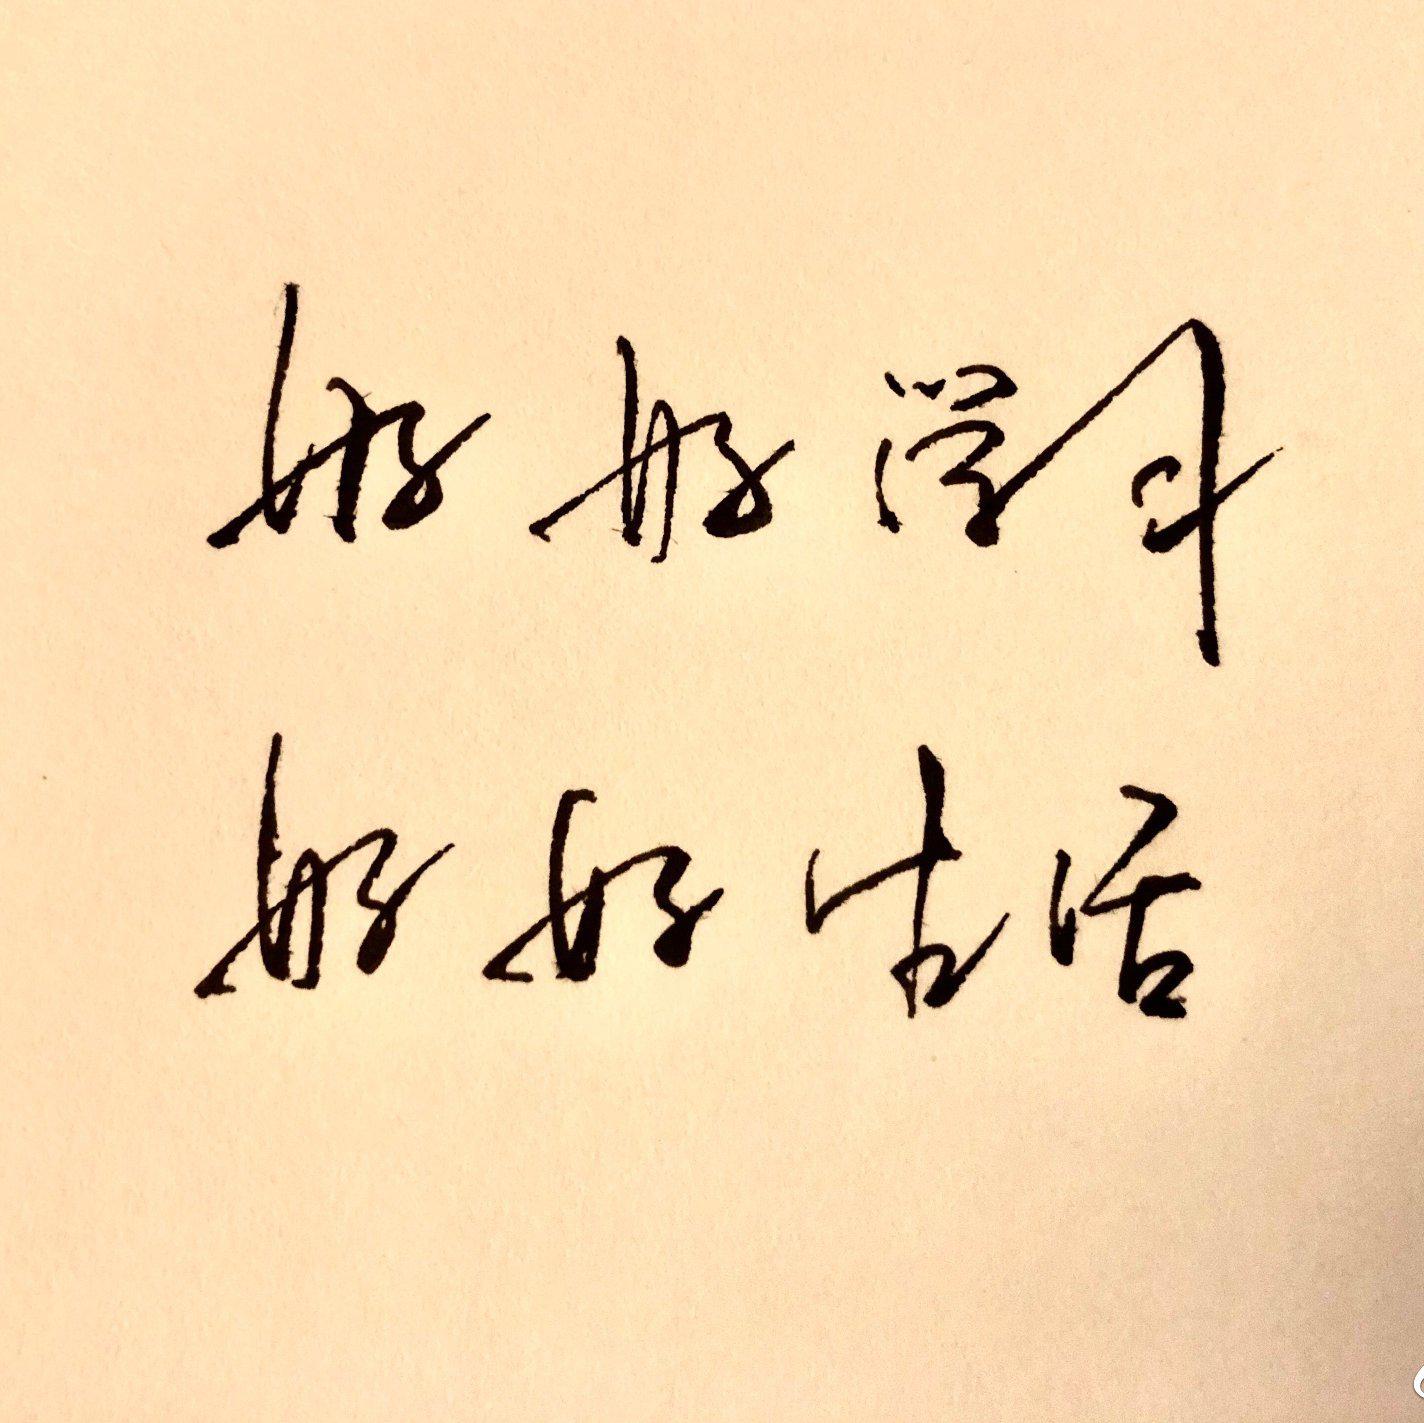 好好学习
好好生活